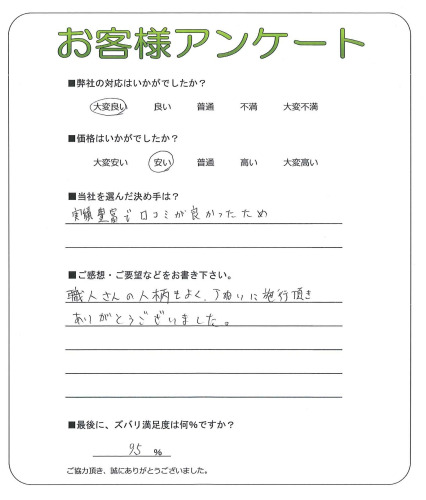 お客様アンケート
■弊社の対応はいかがでしたか？
大変良い 良い 普通 不満 大変不満
■価格はいかがでしたか？
大変安い 安い 普通 高い 大変高い
■当社を選んだ決め手は？
実績豊富で口コミが良かったため
■ご感想・ご要望などをお書き下さい。
職人さんの人柄もよく、丁ねいに施行頂き
ありがとうございました。
■最後に、ズバリ満足度は何％ですか？
95 ％
ご協力頂き、誠にありがとうございました。